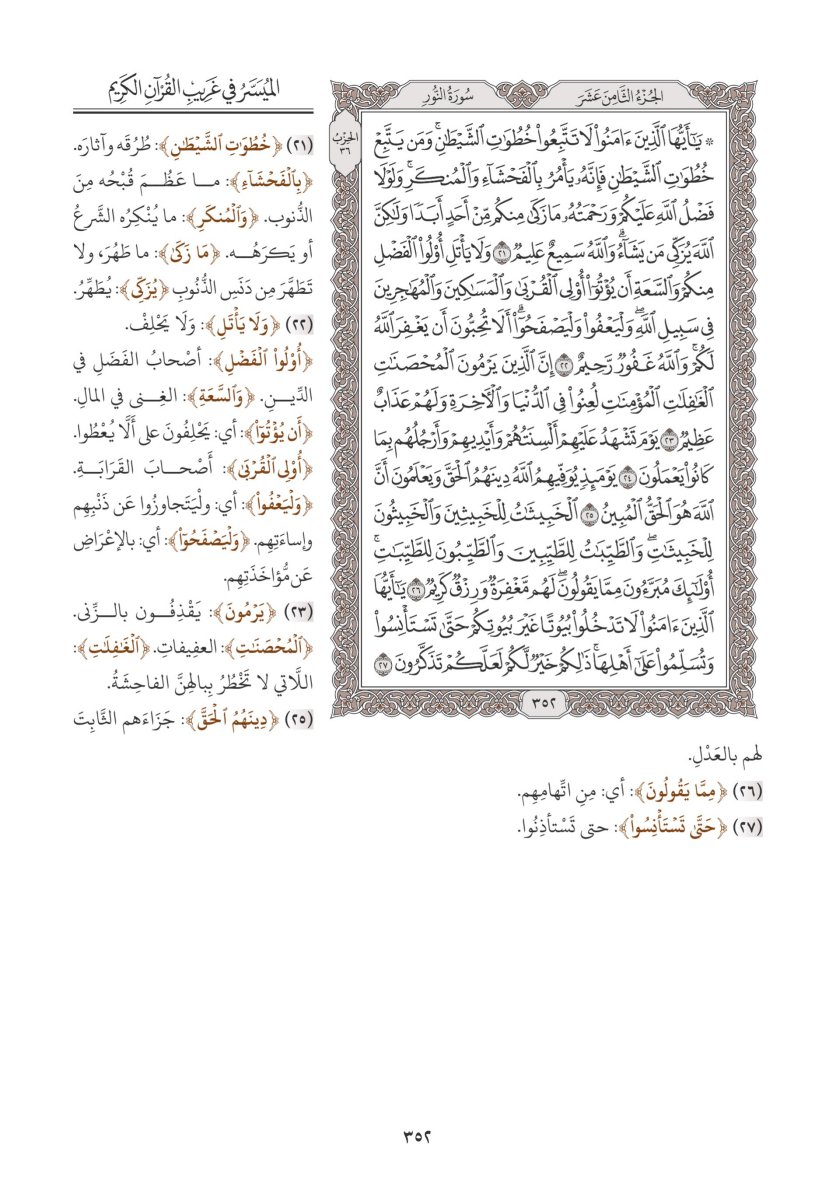 الجُزْءُ الثَّامِنَ عَشَرَ
سُورَةُ النُّورِ
الحِزْبُ
٣٦
۞ يَٰٓأَيُّهَا ٱلَّذِينَ ءَامَنُواْ لَا تَتَّبِعُواْ خُطُوَٰتِ ٱلشَّيْطَٰنِۚ وَمَن يَتَّبِعْ
خُطُوَٰتِ ٱلشَّيْطَٰنِ فَإِنَّهُۥ يَأْمُرُ بِٱلْفَحْشَآءِ وَٱلْمُنكَرِۚ وَلَوْلَا
فَضْلُ ٱللَّهِ عَلَيْكُمْ وَرَحْمَتُهُۥ مَا زَكَىٰ مِنكُم مِّنْ أَحَدٍ أَبَدًا وَلَٰكِنَّ
ٱللَّهَ يُزَكِّى مَن يَشَآءُۗ وَٱللَّهُ سَمِيعٌ عَلِيمٌ ٢١ وَلَا يَأْتَلِ أُوْلُواْ ٱلْفَضْلِ
مِنكُمْ وَٱلسَّعَةِ أَن يُؤْتُوٓاْ أُوْلِى ٱلْقُرْبَىٰ وَٱلْمَسَٰكِينَ وَٱلْمُهَٰجِرِينَ
فِى سَبِيلِ ٱللَّهِۖ وَلْيَعْفُواْ وَلْيَصْفَحُوٓاْۗ أَلَا تُحِبُّونَ أَن يَغْفِرَ ٱللَّهُ
لَكُمْۚ وَٱللَّهُ غَفُورٌ رَّحِيمٌ ٢٢ إِنَّ ٱلَّذِينَ يَرْمُونَ ٱلْمُحْصَنَٰتِ
ٱلْغَٰفِلَٰتِ ٱلْمُؤْمِنَٰتِ لُعِنُواْ فِى ٱلدُّنْيَا وَٱلْءَاخِرَةِ وَلَهُمْ عَذَابٌ
عَظِيمٌ ٢٣ يَوْمَ تَشْهَدُ عَلَيْهِمْ أَلْسِنَتُهُمْ وَأَيْدِيهِمْ وَأَرْجُلُهُم بِمَا
كَانُواْ يَعْمَلُونَ ٢٤ يَوْمَئِذٍ يُوَفِّيهِمُ ٱللَّهُ دِينَهُمُ ٱلْحَقَّ وَيَعْلَمُونَ أَنَّ
ٱللَّهَ هُوَ ٱلْحَقُّ ٱلْمُبِينُ ٢٥ ٱلْخَبِيثَٰتُ لِلْخَبِيثِينَ وَٱلْخَبِيثُونَ
لِلْخَبِيثَٰتِۖ وَٱلطَّيِّبَٰتُ لِلطَّيِّبِينَ وَٱلطَّيِّبُونَ لِلطَّيِّبَٰتِۚ
أُوْلَٰٓئِكَ مُبَرَّءُونَ مِمَّا يَقُولُونَۖ لَهُم مَّغْفِرَةٌ وَرِزْقٌ كَرِيمٌ ٢٦ يَٰٓأَيُّهَا
ٱلَّذِينَ ءَامَنُواْ لَا تَدْخُلُواْ بُيُوتًا غَيْرَ بُيُوتِكُمْ حَتَّىٰ تَسْتَأْنِسُواْ
وَتُسَلِّمُواْ عَلَىٰٓ أَهْلِهَاۚ ذَٰلِكُمْ خَيْرٌ لَّكُمْ لَعَلَّكُمْ تَذَكَّرُونَ ٢٧
٣٥٢
المُيَسَّرُ فِي غَرِيبِ القُرْآنِ الكَرِيمِ
(٢١) ﴿خُطُوَٰتِ ٱلشَّيْطَٰنِ﴾: طُرُقَه وآثارَه.
﴿بِٱلْفَحْشَآءِ﴾: مـا عَظُـمَ قُبْحُه مِنَ
الذُّنوب. ﴿وَٱلْمُنكَرِ﴾: ما يُنْكِرُه الشَّرعُ
أو يَكرَهُـه. ﴿مَا زَكَىٰ﴾: ما طَهُرَ، ولا
تَطَهَّرَ مِن دَنَسِ الذُّنُوبِ ﴿يُزَكِّى﴾: يُطَهِّرُ.
(٢٢) ﴿وَلَا يَأْتَلِ﴾: وَلَا يَحْلِفْ.
﴿أُوْلُواْ ٱلْفَضْلِ﴾: أصْحابُ الفَضَلِ في
الدِّيـنِ. ﴿وَٱلسَّعَةِ﴾: الغِنى في المالِ.
﴿أَن يُؤْتُوٓاْ﴾: أي: يَحْلِفُونَ على أَلَّا يُعْطُوا.
﴿أُوْلِى ٱلْقُرْبَىٰ﴾: أَصْحـابَ القَرَابَـةِ.
﴿وَلْيَعْفُواْ﴾: أي: ولْيَتَجاوزُوا عَن ذَنْبِهِم
وإساءَتِهِم. ﴿وَلْيَصْفَحُوٓاْ﴾: أي: بالإعْرَاضِ
عَن مُّؤاخَذَتِهِم.
(٢٣) ﴿يَرْمُونَ﴾: يَقْذِفُـون بالـزِّنى.
﴿ٱلْمُحْصَنَٰتِ﴾: العفيفاتِ. ﴿ٱلْغَٰفِلَٰتِ﴾:
اللَّاتي لا تَخْطُرُ بِبالِهِنَّ الفاحِشَةُ.
(٢٥) ﴿دِينَهُمُ ٱلْحَقَّ﴾: جَزَاءَهم الثَّابِتَ
لهم بالعَدْلِ.
(٢٦) ﴿مِمَّا يَقُولُونَ﴾: أي: مِنِ اتِّهامِهِم.
(٢٧) ﴿حَتَّىٰ تَسْتَأْنِسُواْ﴾: حتى تَسْتأذِنُوا.
٣٥٢